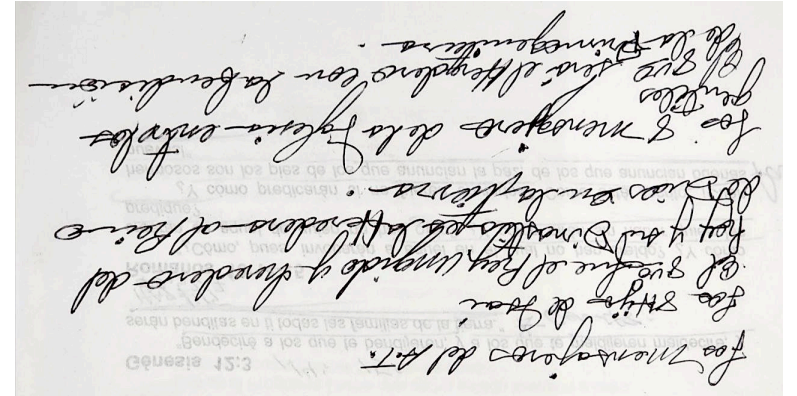 Los mensajeros del A.T.
Los 8 Hijos de Isai
El 8vo fue el Rey ungido y heredero del
rey y su Dinastia es la Heredera al Reino
de Dios en la tierra.
Los 8 mensajeros de la Iglesia entre los
gentiles
El 8vo será el Heredero con la Bendición
de la Primogenitura.